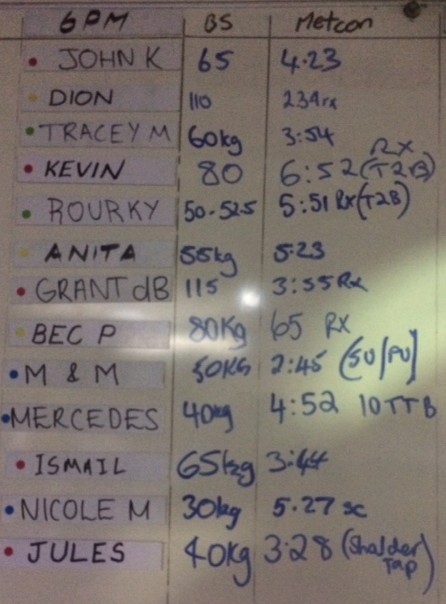 6PM BS Metcon
JOHN K 65 4.23
DION 110 234rx
TRACEY M 60kg 3:54
KEVIN 80 6:52 Rx (T2B)
ROURKY 50-52.5 5:51 Rx (T2B)
ANITA 55kg 5.23
GRANT dB 115 3:55 Rx
BEC P 80Kg 65 RX
M & M 50KG 2:45 (SU/PU)
MERCEDES 40kg 4:52 10 TTB
ISMAIL 65kg 3:44
NICOLE M 30kg 5.27 sc
JULES 40kg 3:28 (Sholder
Tap)